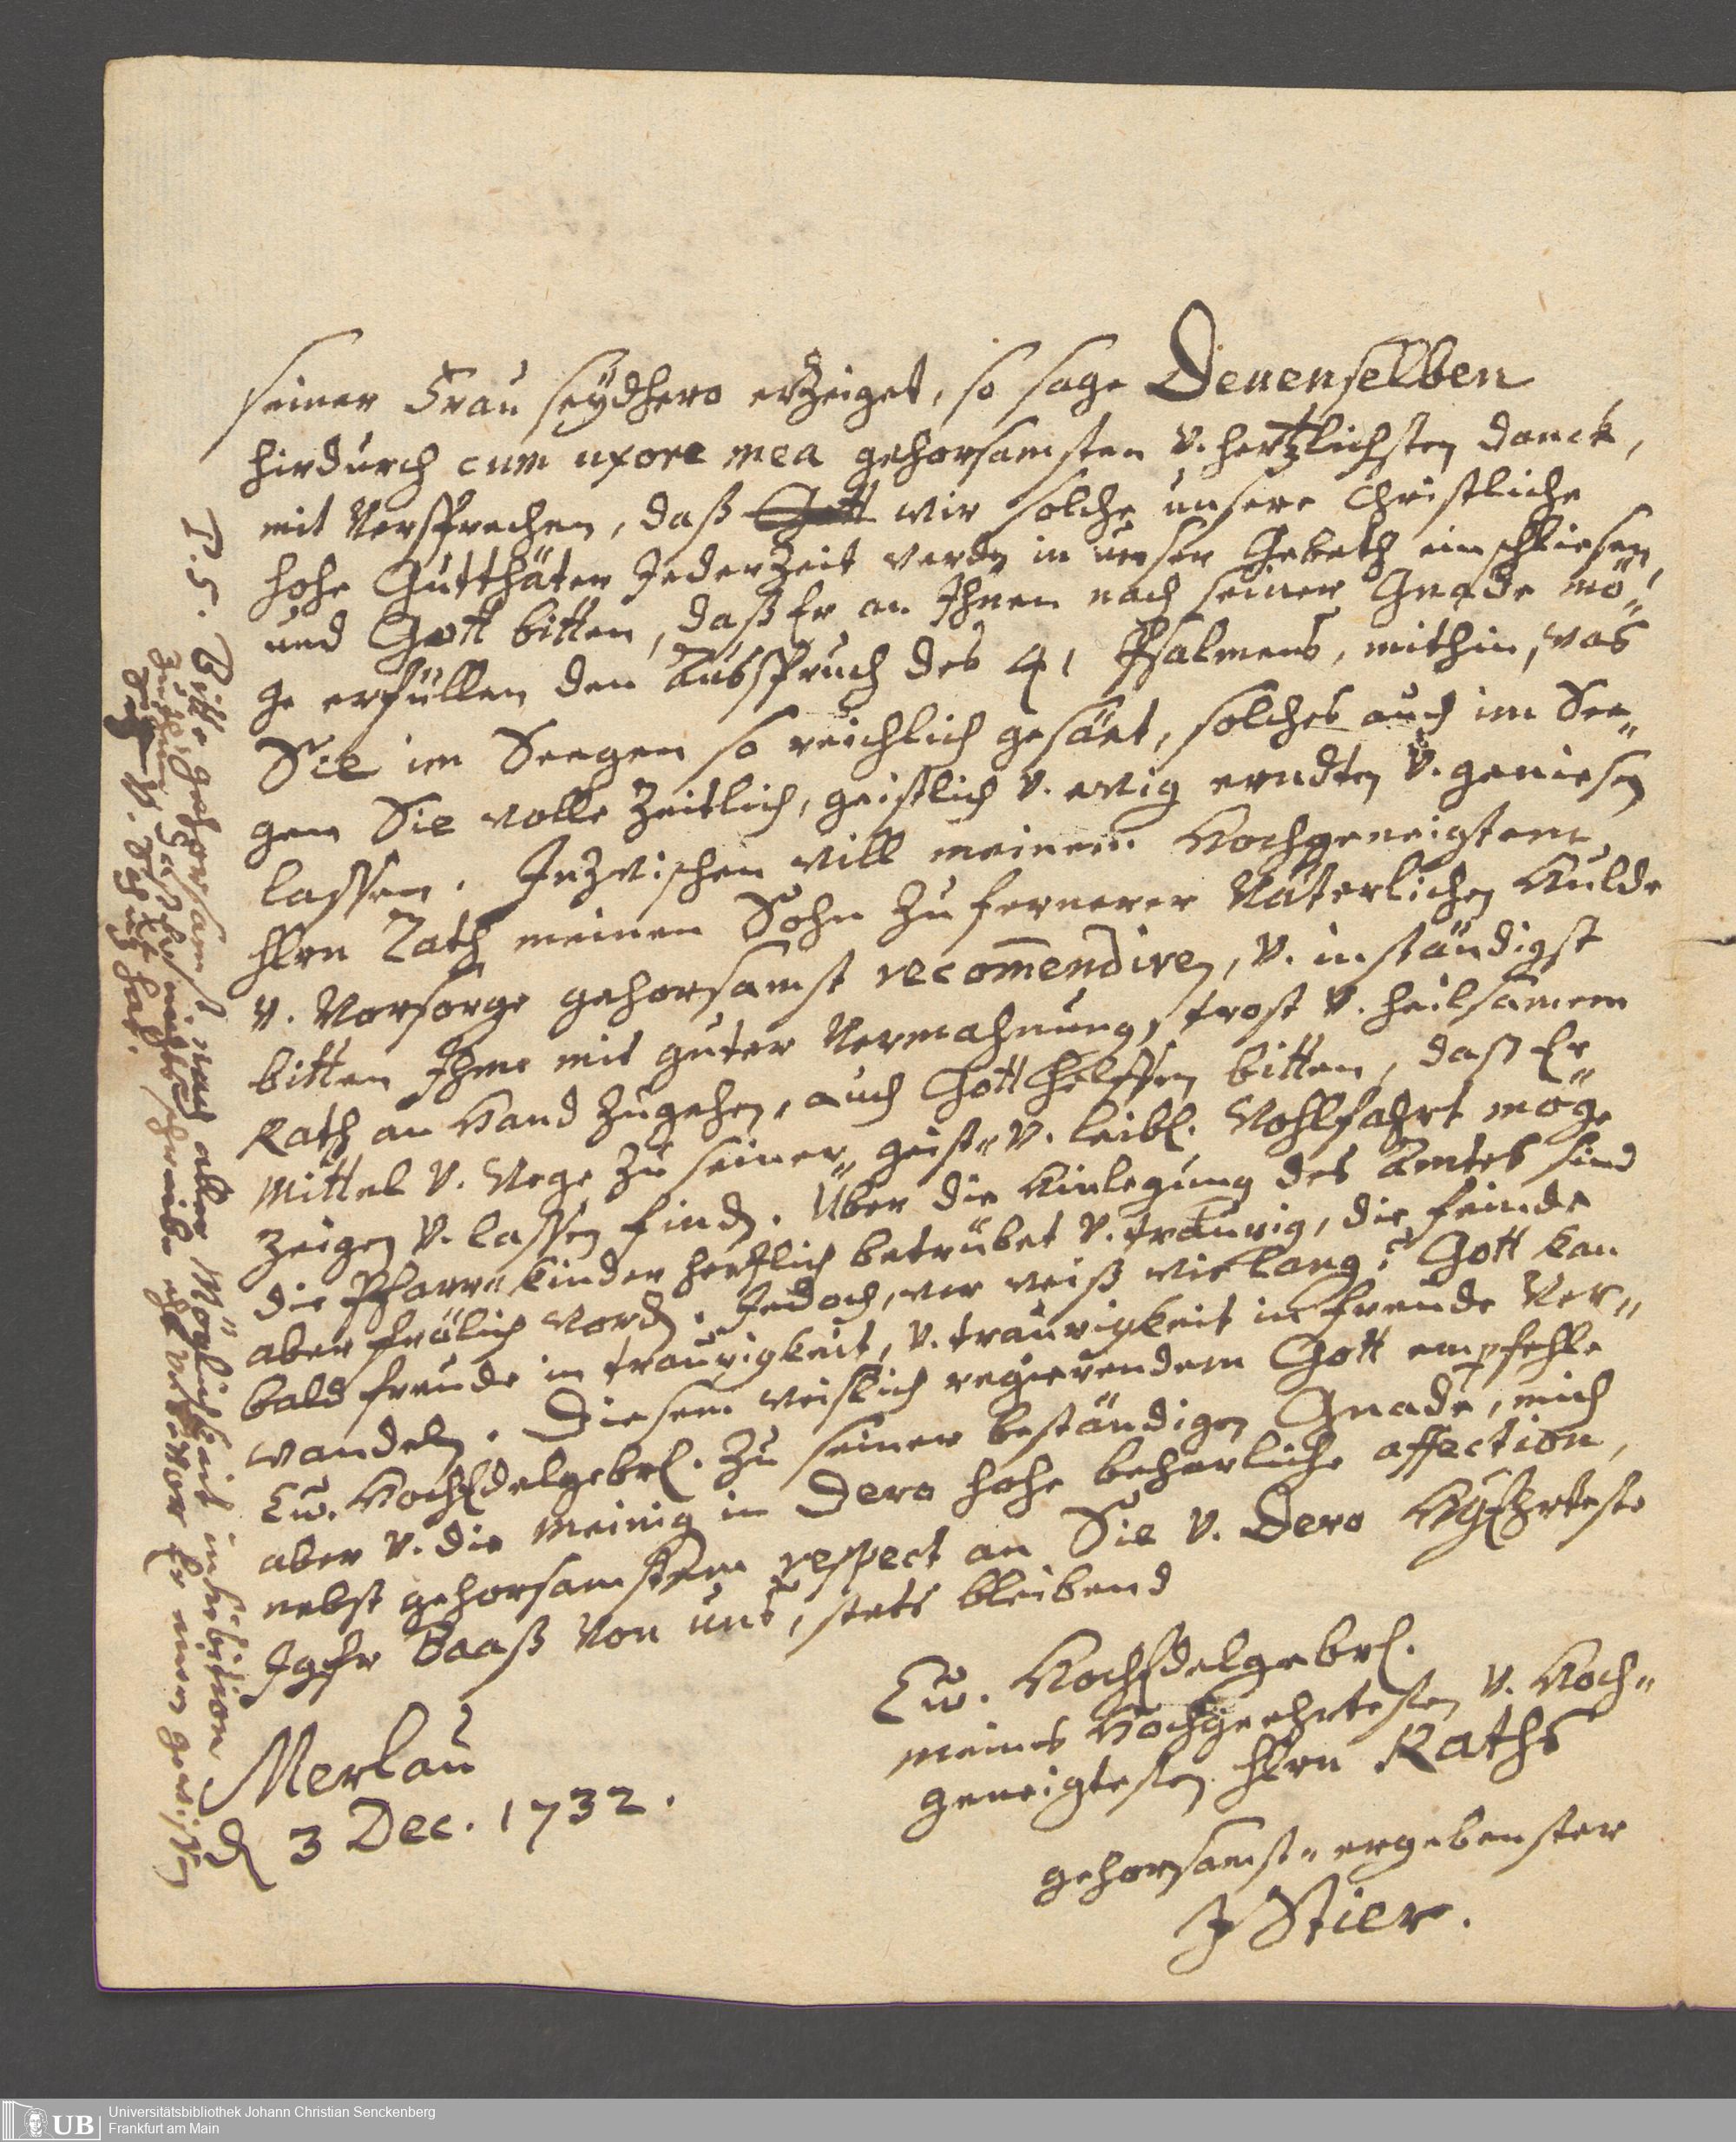 seiner Frau seÿdhero erzeiget, so sage Denenselben
hirdurch cum uxore mea gehorsamsten v. hertzlichsten danck,
mit Versprechen, daß Gott wir solche unsere Christliche
hohe Gutthäter Jederzeit werdn in unser Gebeth einschliesen,
und Gott bitten, daß Er an Ihnen nach seiner Gnade mö„
ge erfüllen den Außspruch des 41 Psalmens, mithin, was
Sie im Seegen so reichlich gesäet, solches auch im See„
gen Sie wolle Zeitlich, geistlich v. ewig erndten v. geniesen
lassen. Inzwischen will meinem Hochgeneigtem
Hrn Rath meinen Sohn zu fernerer Väterlichen Hulde
v. Vorsorge gehorsamst recom̄endiren, v. inständigst
bitten Ihme mit guter Vermahnung, trost v. heilsamem
Rath an Hand zugehen, auch Gott helffen bitten, daß Er
Mittel v. Wege zu seiner„ geist„ v. leibl. Wohlfahrt möge
zeigen v. lassen finden. Über die Hinlegung des Amtes sind
die Pfarr„kinder hertzlich betrübet v. traurig, die feinde
aber frölich worden. Jedoch, wer weiß wie lang? Gott kan
bald freude in traurigkeit, v. traurigkeit in freude Ver„
wandeln. Diesem weislich regierendem Gott empfehle
Ew. HochEdelgebrl. zu seiner beständigen Gnade, mich
aber v. die Meinig in Dero hohe beharliche affection,
nebst gehorsamstem respect an Sie v. Dero
Jgfr Baaß von uns, stets bleibend
Ew. HochEdelgebrl.
meines Hochgeehrtesten v. Hoch„
geneigtesten Hrn Raths
gehorsamst„ ergebenster
J Stier.
Merlau
d 3 Dec. 1732.
P.S. Bitte gehorsamst nach aller Möglichkeit inhibition
zuthun, daß Er nichts schreibe, ehe v. bevor Er einen gewissen
v. Schutz hat.
Universitätsbibliothek Johann Christian Senckenberg
Frankfurt am Main
UB